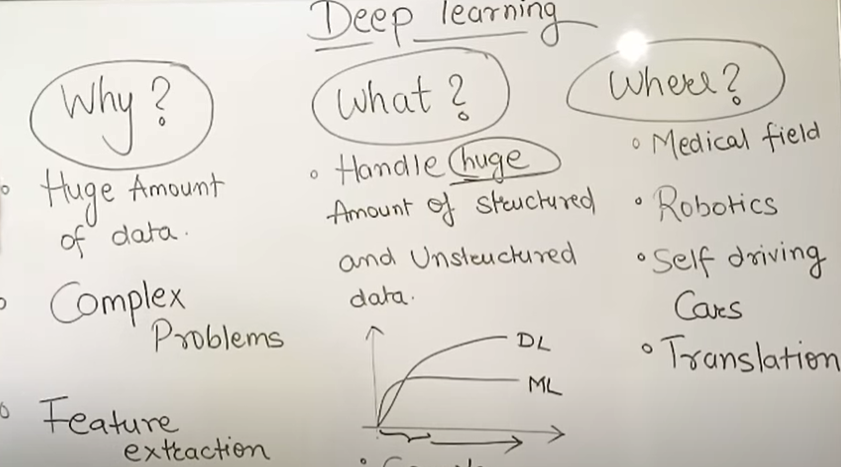 Deep learning
Why?
Huge Amount
of data.
Complex
Problems
Feature
extraction
What?
Handle huge
Amount of structured
and Unstructured
data.
DL
ML
Where?
Medical field
Robotics
Self driving
Cars
Translation